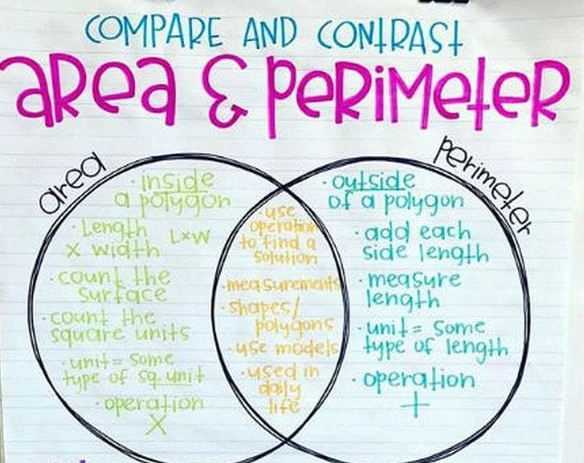 COMPARE AND CONTRAST
area & PERIMETER
area
· inside
a polygon
· Length
x width LxW
· count the
surface
· count the
square units
· unit = some
type of sq. unit
· operation
X
· use
operation
to find a
solution
· measurements
· shapes/
polygons
· use models
· used in
daily
life
perimeter
· outside
of a polygon
· add each
side length
· measure
length
· unit = some
type of length
· operation
+